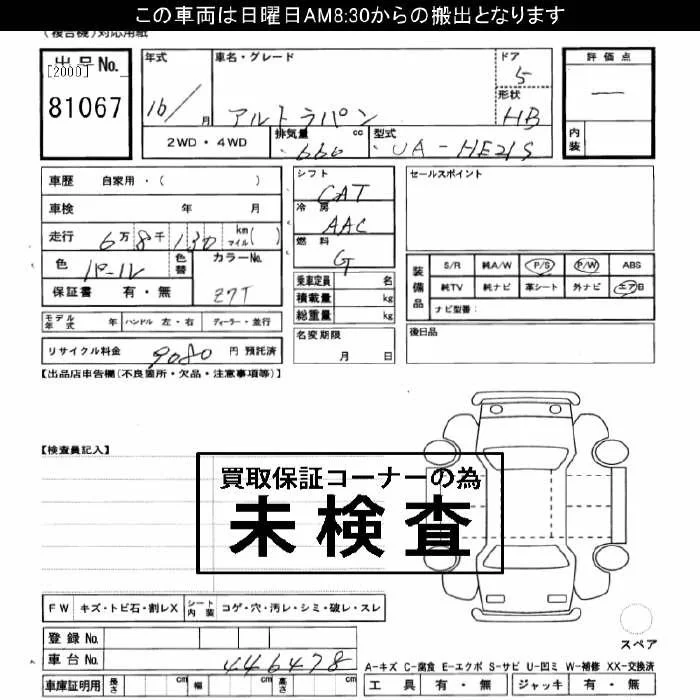 この車両は日曜日AM8:30からの搬出となります
(複合機)対応用紙
出品No.
[2000]
81067
年式
16/ 月
車名・グレード
アルトラパン
ドア
5
形状
HB
2WD・4WD
排気量 cc
660
型式
UA-HE21S
評価点
―
内装
車歴 自家用・( )
車検 年 月
走行 6万8千130 km マイル( )
色 パール 色替
カラーNo.
Z7T
保証書 有・無
モデル年式 年 ハンドル 左・右 ディーラー・並行
リサイクル料金 9080 円 預託済
シフト
CAT
冷房
AAC
燃料
G
乗車定員 名
積載量 kg
総重量 kg
名変期限
月 日
セールスポイント
装備品
S/R 純A/W P/S P/W ABS
純TV 純ナビ 革シート 外ナビ エアB
ナビ型番:
後日品
【出品店車告欄(不良箇所・欠品・注意事項等)】
【検査員記入】
買取保証コーナーの為
未検査
FW キズ・トビ石・割レX シート内装 コゲ・穴・汚レ・シミ・破レ・スレ
登録No.
車台No. 446478
車庫証明用 長さ cm 幅 cm 高さ cm
スペア
A-キズ C-腐食 E-エクボ S-サビ U-凹ミ W-補修 XX-交換済
工具 有・無 ジャッキ 有・無